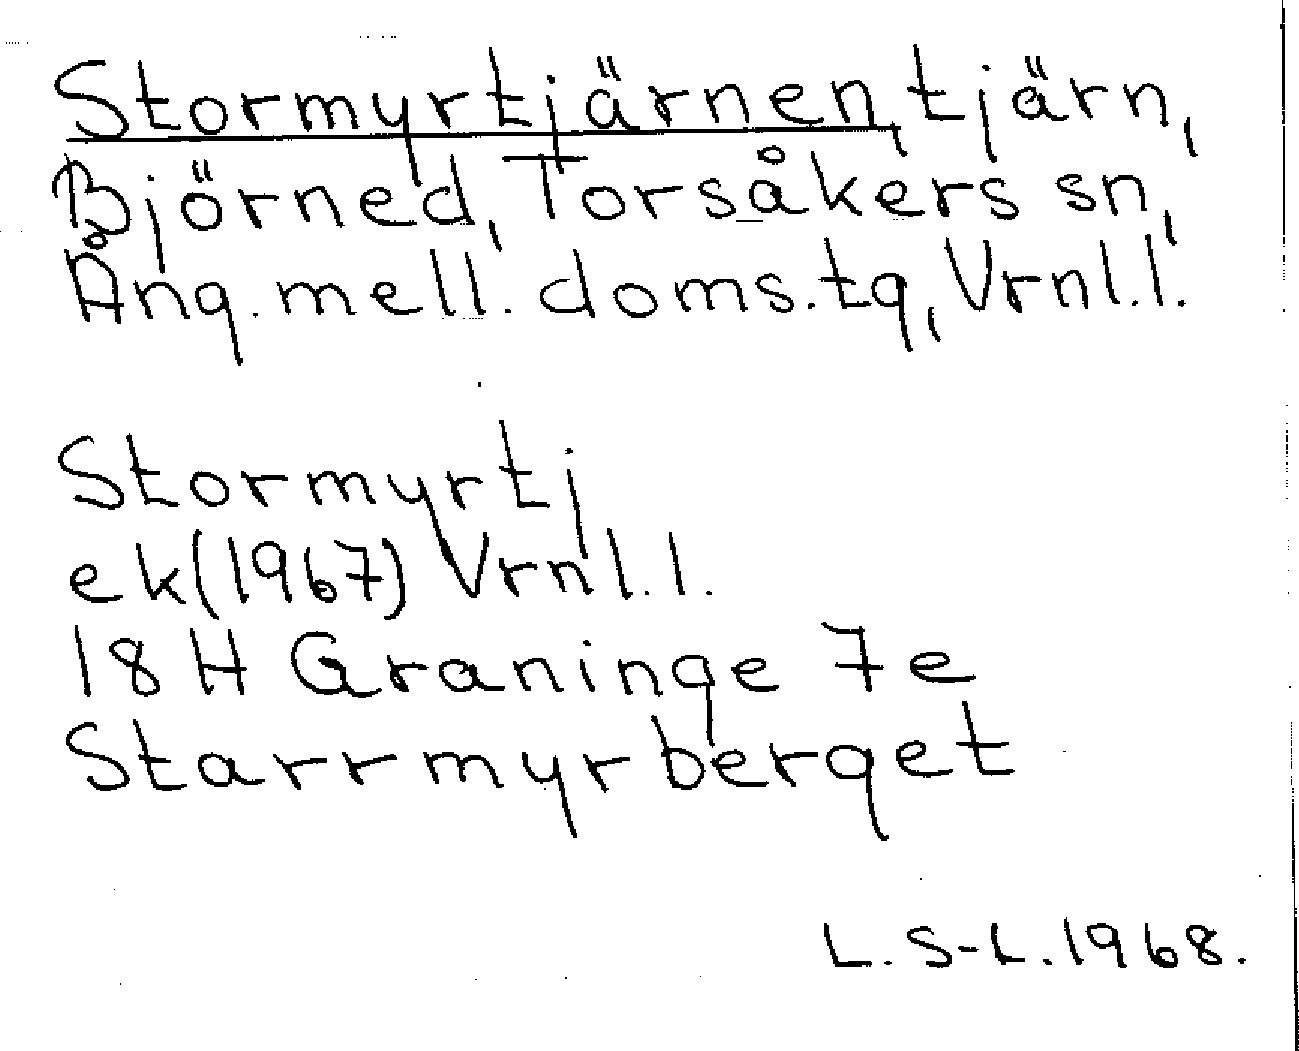 Stormyrtjärnen, tjärn,
Björned, Torsåkers sn,
Ång. mell. doms.tg, Vrnl.l.
Stormyrtj
ek(1967) Vrnl.l.
18 H Graninge 7e
Starrmyrberget
L. S-L. 1968.